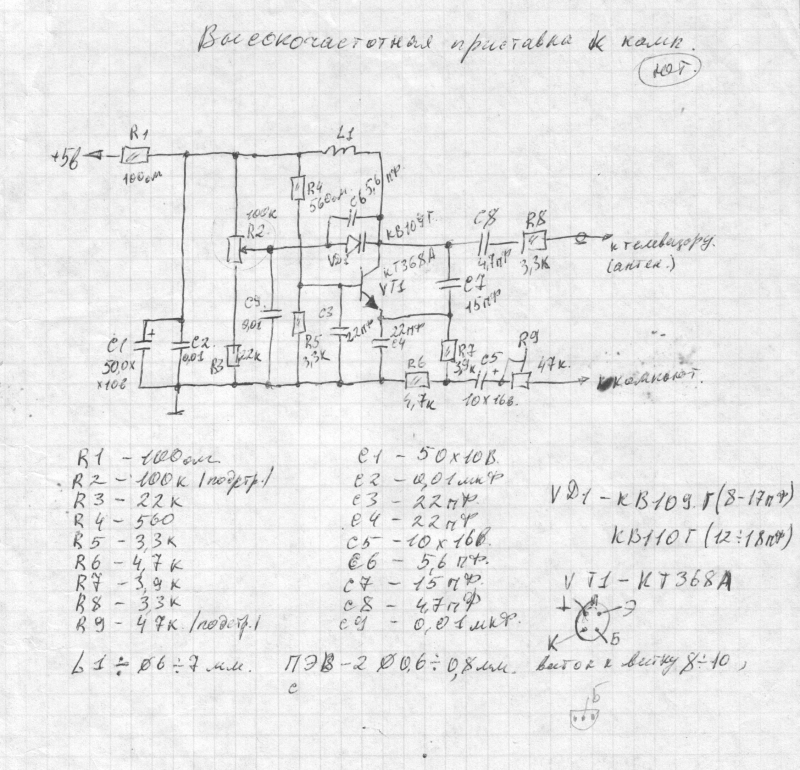 Высокочастотная приставка к комп.
ЮТ.
+5в
R1
100ом
L1
R4
560ом
C6 5,6пф
100к
R2
VD1
КВ109Г.
КТ368А
VT1
C8
4,7пф
R8
3,3к
к телевизору.
(антен.)
C7
15пф
C9
0,01
C3
22пф
22пф
C4
C1
50,0х
х10в
+
C2
0,01
R3
22к
R5
3,3к
R6
4,7к
R7
3,9к
C5
+
10х16в.
R9
47к.
к компьют.
R1 – 100ом
R2 – 100к /подстр./
R3 – 22к
R4 – 560
R5 – 3,3к
R6 – 4,7к
R7 – 3,9к
R8 – 33к
R9 – 47к /подстр./
C1 – 50х10В.
C2 – 0,01мкф
C3 – 22пф.
C4 – 22пф
C5 – 10х16В.
C6 – 5,6пф.
C7 – 15пф.
C8 – 47пф
C9 – 0,01мкф.
VД1 – КВ109.Г (8-17пф)
КВ110Г (12÷18пф)
VT1 – КТ368А
Э
К
Б
L1 ÷ Ø6÷7мм. ПЭВ-2 Ø0,6÷0,8мм. виток к витку 8÷10,
с
Б